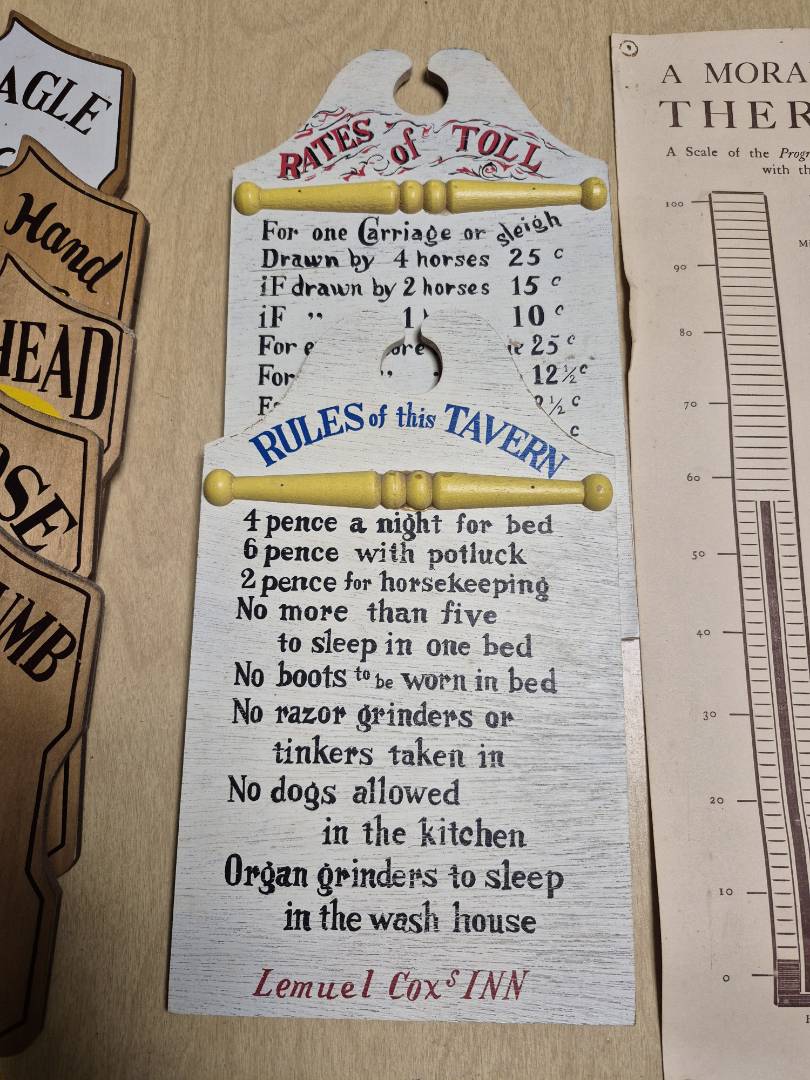 AGLE
Hand
HEAD
OSE
UMB
RATES of TOLL
For one Carriage or sleigh
Drawn by 4 horses 25 c
iF drawn by 2 horses 15 c
iF " 1 10 c
For 25 c
For " 12½ c
½ c
c
RULES of this TAVERN
4 pence a night for bed
6 pence with potluck
2 pence for horsekeeping
No more than five
to sleep in one bed
No boots to be worn in bed
No razor grinders or
tinkers taken in
No dogs allowed
in the kitchen
Organ grinders to sleep
in the wash house
Lemuel Coxs INN
A MORA
THER
A Scale of the Progr
with th
100
90
80
70
60
50
40
30
20
10
0